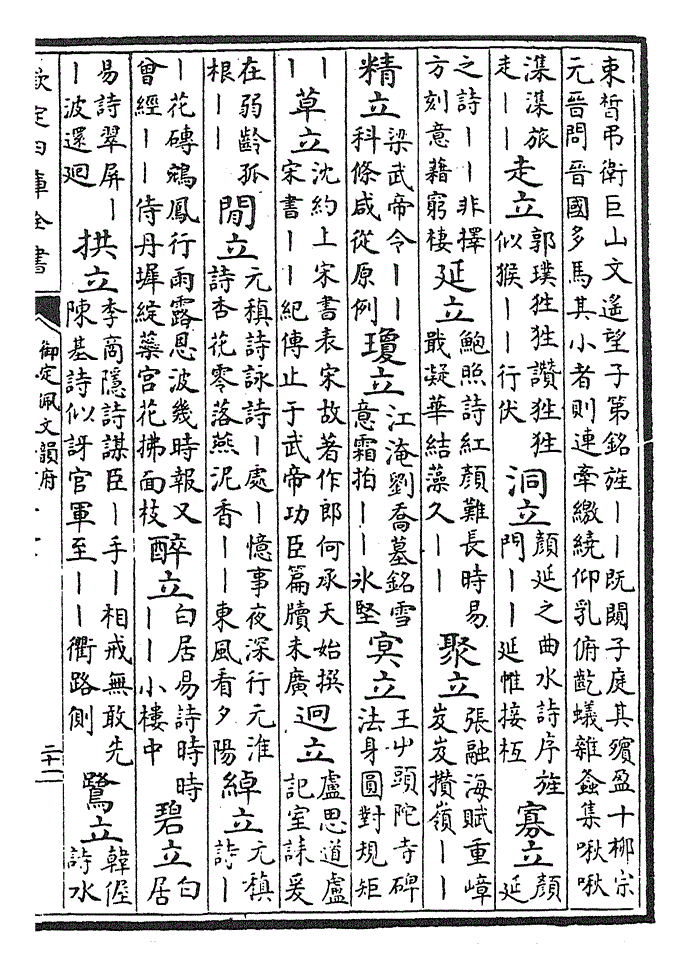 束晳弔衛巨山文遙望子第銘旌——既闗子庭其殯盈十柳宗
元晉問晉國多馬其小者則連牽繳繞仰乳俯齕蟻雜螽集啾啾
渫渫旅走——走立郭璞狌狌讚狌狌似猴——行伏洞立顔延之曲水詩序旌門——延帷接枑寡立顔延
之詩——非擇方刻意藉窮棲延立鮑照詩紅顔難長時易戢凝華結藻久——聚立張融海賦重嶂岌岌攢嶺——
精立梁武帝令——科條咸從原例瓊立江淹劉喬墓銘雪意霜拍——氷堅冥立王屮頭陀寺碑法身圓對規矩
——草立沈約上宋書表宋故著作郎何承天始撰宋書——紀傳止于武帝功臣篇牘未廣迥立盧思道盧記室誄爰
在弱齡孤根——閒立元稹詩詠詩—處—憶事夜深行元淮詩杏花零落燕泥香——東風看夕陽綽立元稹詩—
—花磚鵷鳳行雨露恩波幾時報又曾經——侍丹墀綻蘂宮花拂面枝醉立白居易詩時時——小樓中碧立白居
易詩翠屏——波還廻拱立李商隱詩謀臣—手—相戒無敢先陳基詩似訝官軍至——衢路側鷺立韓偓詩水
欽定四庫全書
御定佩文韻府
二十二